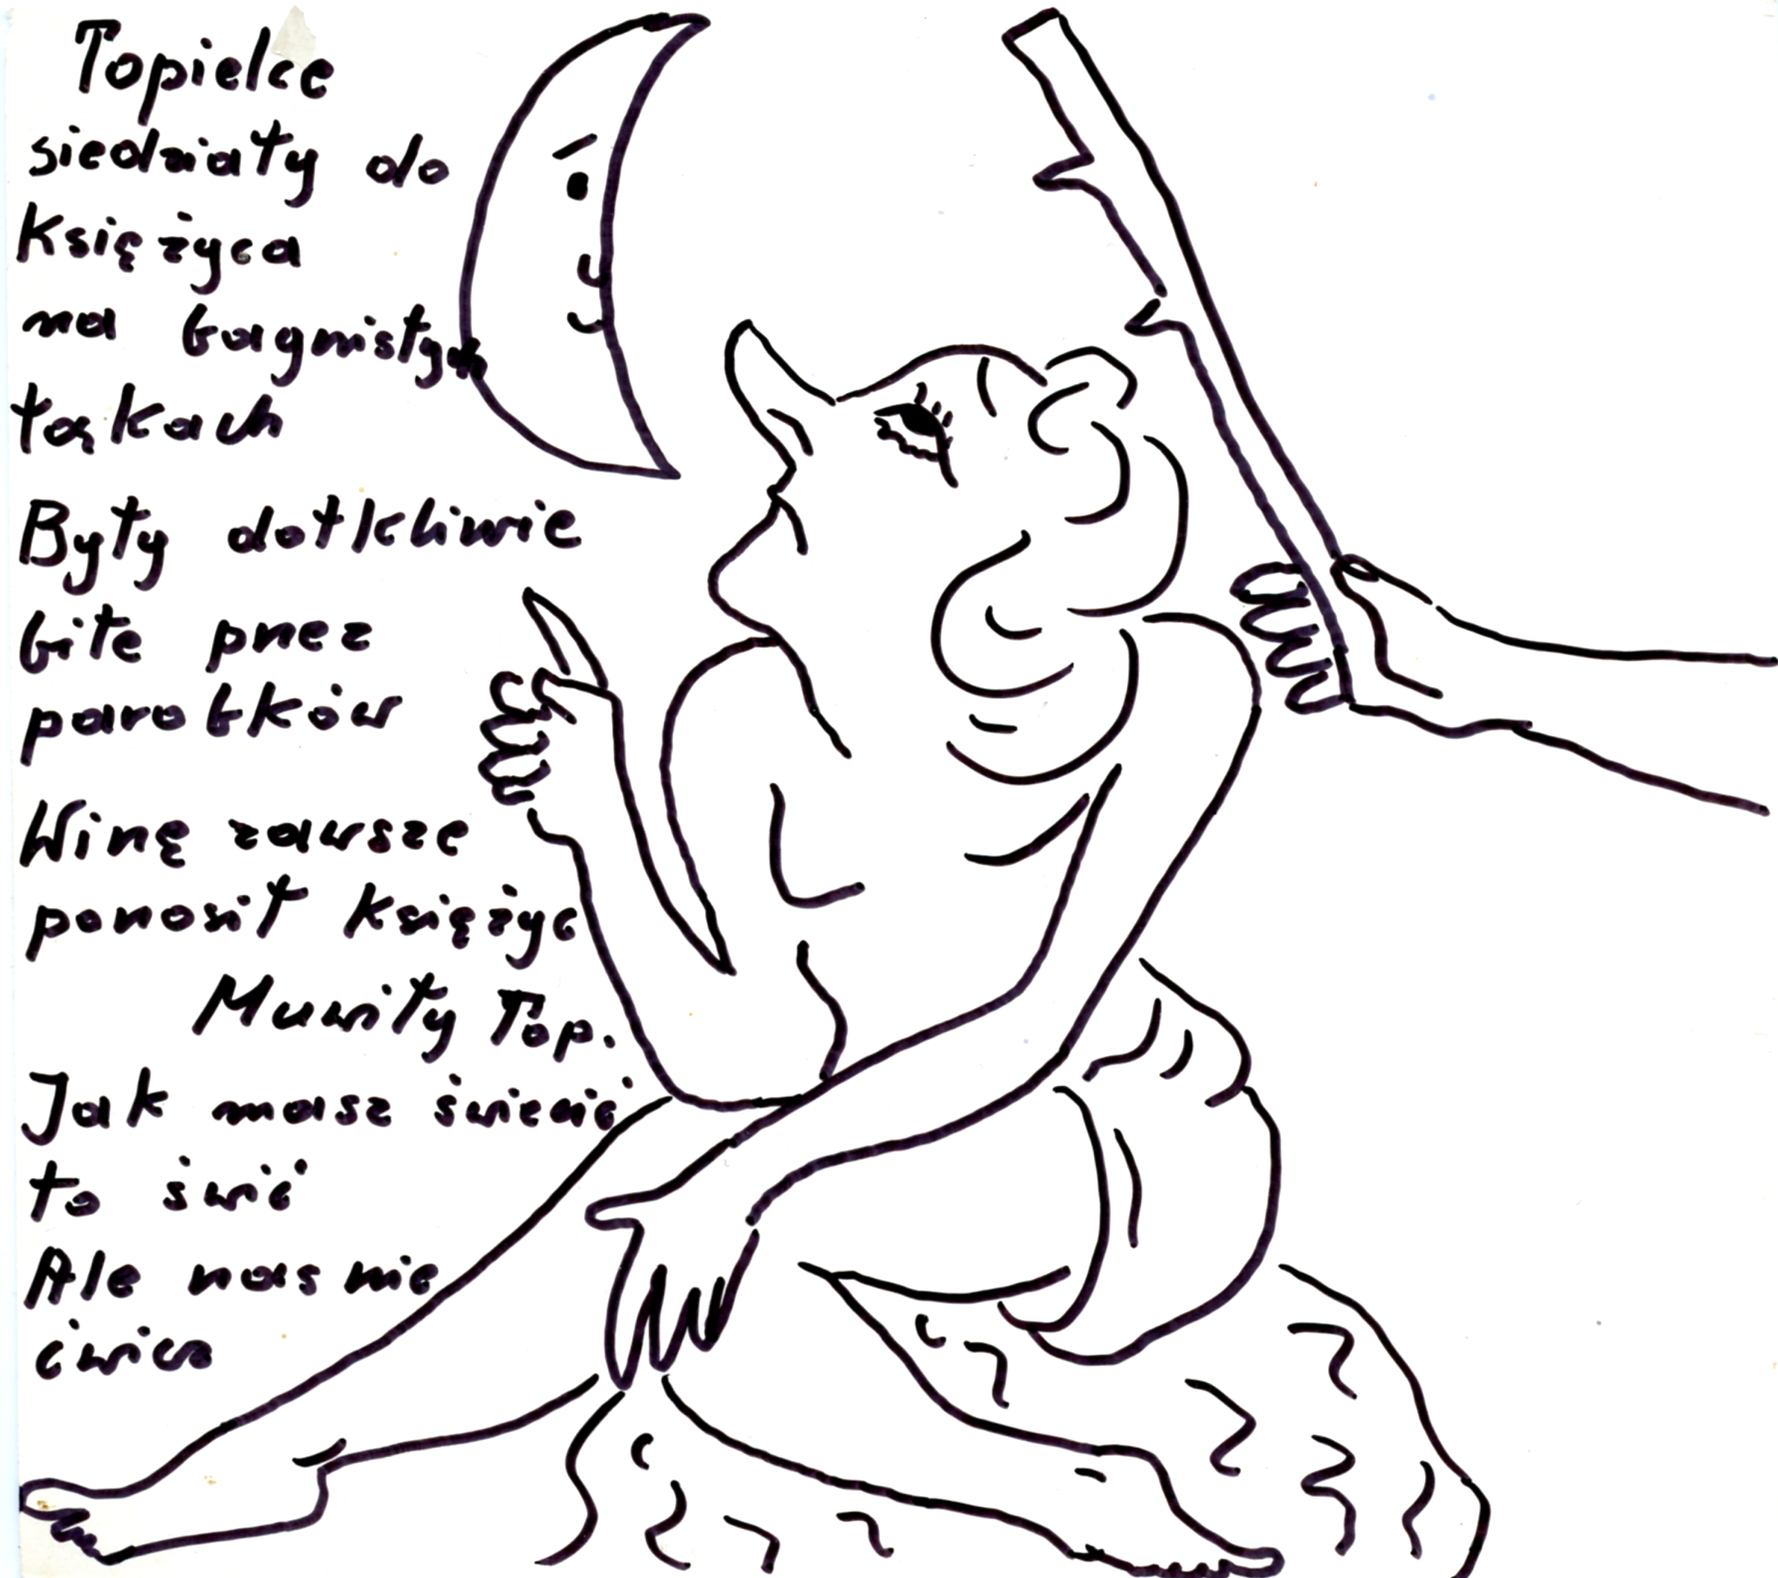 Topielce
siedziały do
Księżyca
na bagnistych
łąkach
Były dotkliwie
bite przez
parobków
Winę zawsze
ponosił księżyc
Muwiły Top.
Jak masz świecić
to świć
Ale nas nie
ćwicz